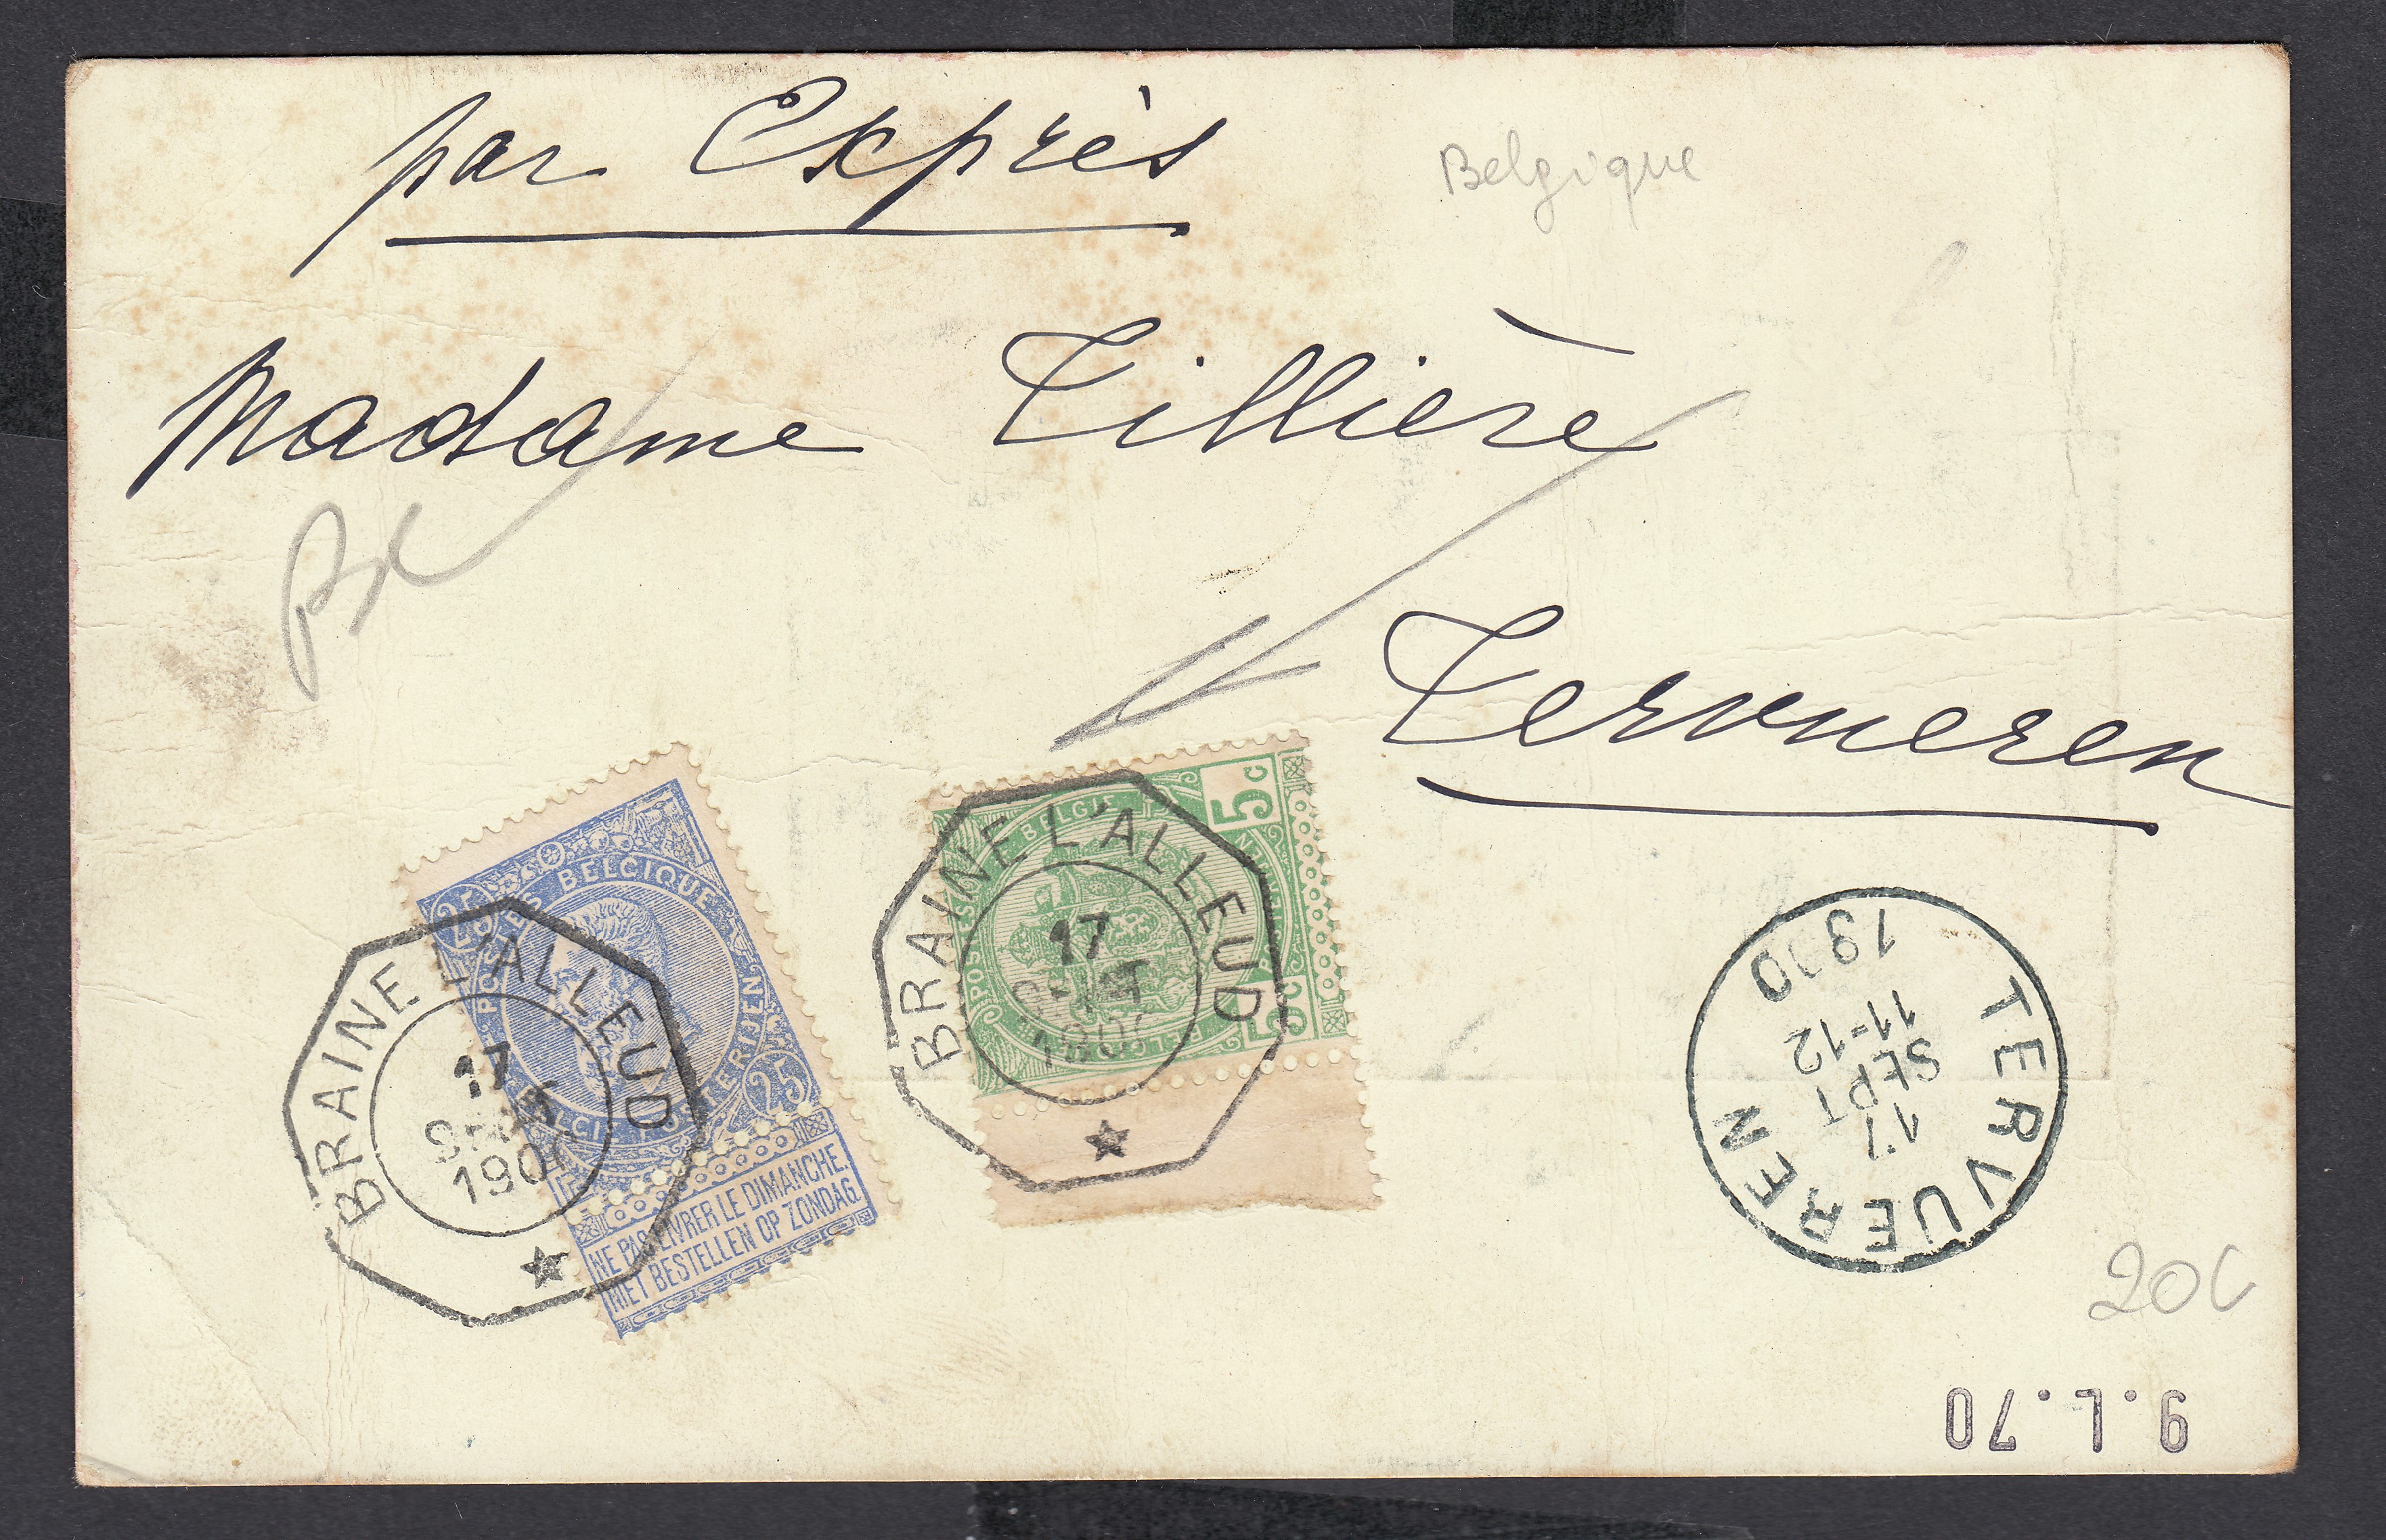 par Exprès
Belgique
Madame Tillière
Tervueren
25
POSTES BELGIQUE
POSTERIJEN
25
NE PAS LIVRER LE DIMANCHE.
NIET BESTELLEN OP ZONDAG.
BRAINE L'ALLEUD
17
BELGIE
5c
5c
BRAINE L'ALLEUD
17
TERVUEREN
17
SEPT
11-12
1900
20C
9.L.70